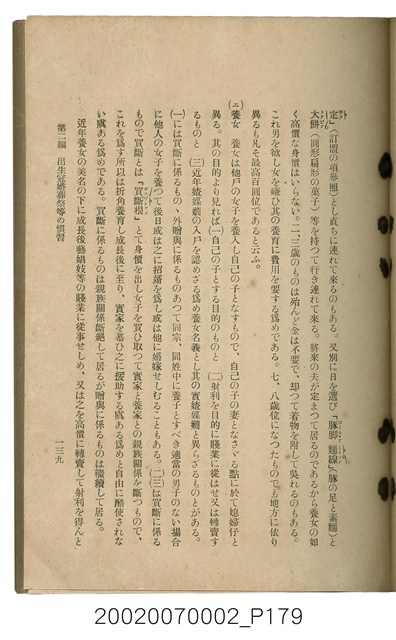 定』(訂盟の項參照)とし直ちに連れて來るのもある。又別に日を選び『豚脚、麵線』(豚の足と素麵)と
大餠(圓形扁形の菓子)等を持つて行き連れて來る。將來の夫が定まつて居るのであるから養女の如
く高價な身價はいらない。二、三歳のものは殆んど金は不要で、却つて着物を附して吳れるのもある。
これ男を欲し女を嫌ひ其の養育に費用を要する爲めである。七、八歳位になつたものでも地方に依り
異るも凡そ最高百圓位であると云ふ。
(ニ)養女 養女は他戶の女子を養入し自己の子となすもので、自己の子の妻となさゞる點に於て媳婦仔と
異る。其の目的より見れば(一)自己の子とする目的のものと (二)射利を目的に賤業に從はせ又は轉賣す
るものと (三)近年婢の入戶を認めざる爲め養女名義とし其の實と異らざるものとがある。
(一)には買斷に係るもの、外贈與に係るものあつて同宗、同姓中に養子とすべき適當の男子のない場合
に他人の女子を養つて後日或は之に招婿を爲し或は他に婚嫁せしむることもある。(二)(三)は買斷に係る
もので買斷とは、『買斷根』とて身價を出し女子を買ひ取つて實家と養家との親族關係を斷つもので、
これを爲す所以は折角養育し成長後に至り、實家を慕ひ之に援助する處ある爲めと自由に酷使されな
い處ある爲めである。買斷に係るものは親族關係斷絕して居るが贈與に係るものは繼續して居る。
近年養女の美名の下に成長後藝娼妓等の賤業に從事せしめ、又は之を高價に轉賣して射利を得んと
第二編 出生冠婚葬祭等の慣習
一三九
20020070002_P179